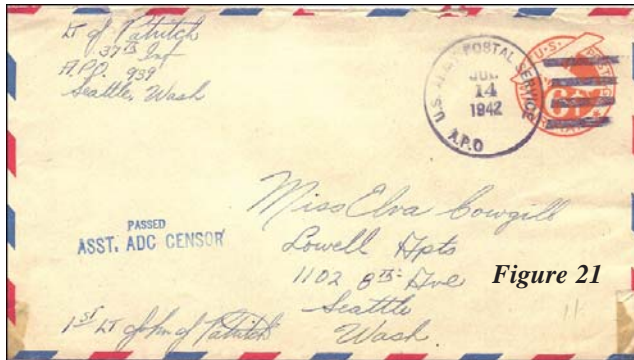 Lt J. Patritch
37th Inf
A.P.O. 939
Seattle, Wash
U.S. ARMY POSTAL SERVICE
JUL
14
1942
A.P.O
U.S. POSTAGE
6¢
AIR
PASSED
ASST. ADC CENSOR
Miss Elva Cowgill
Lowell Apts
1102 8th Ave
Seattle
Wash.
1st Lt John J Patritch
Figure 21